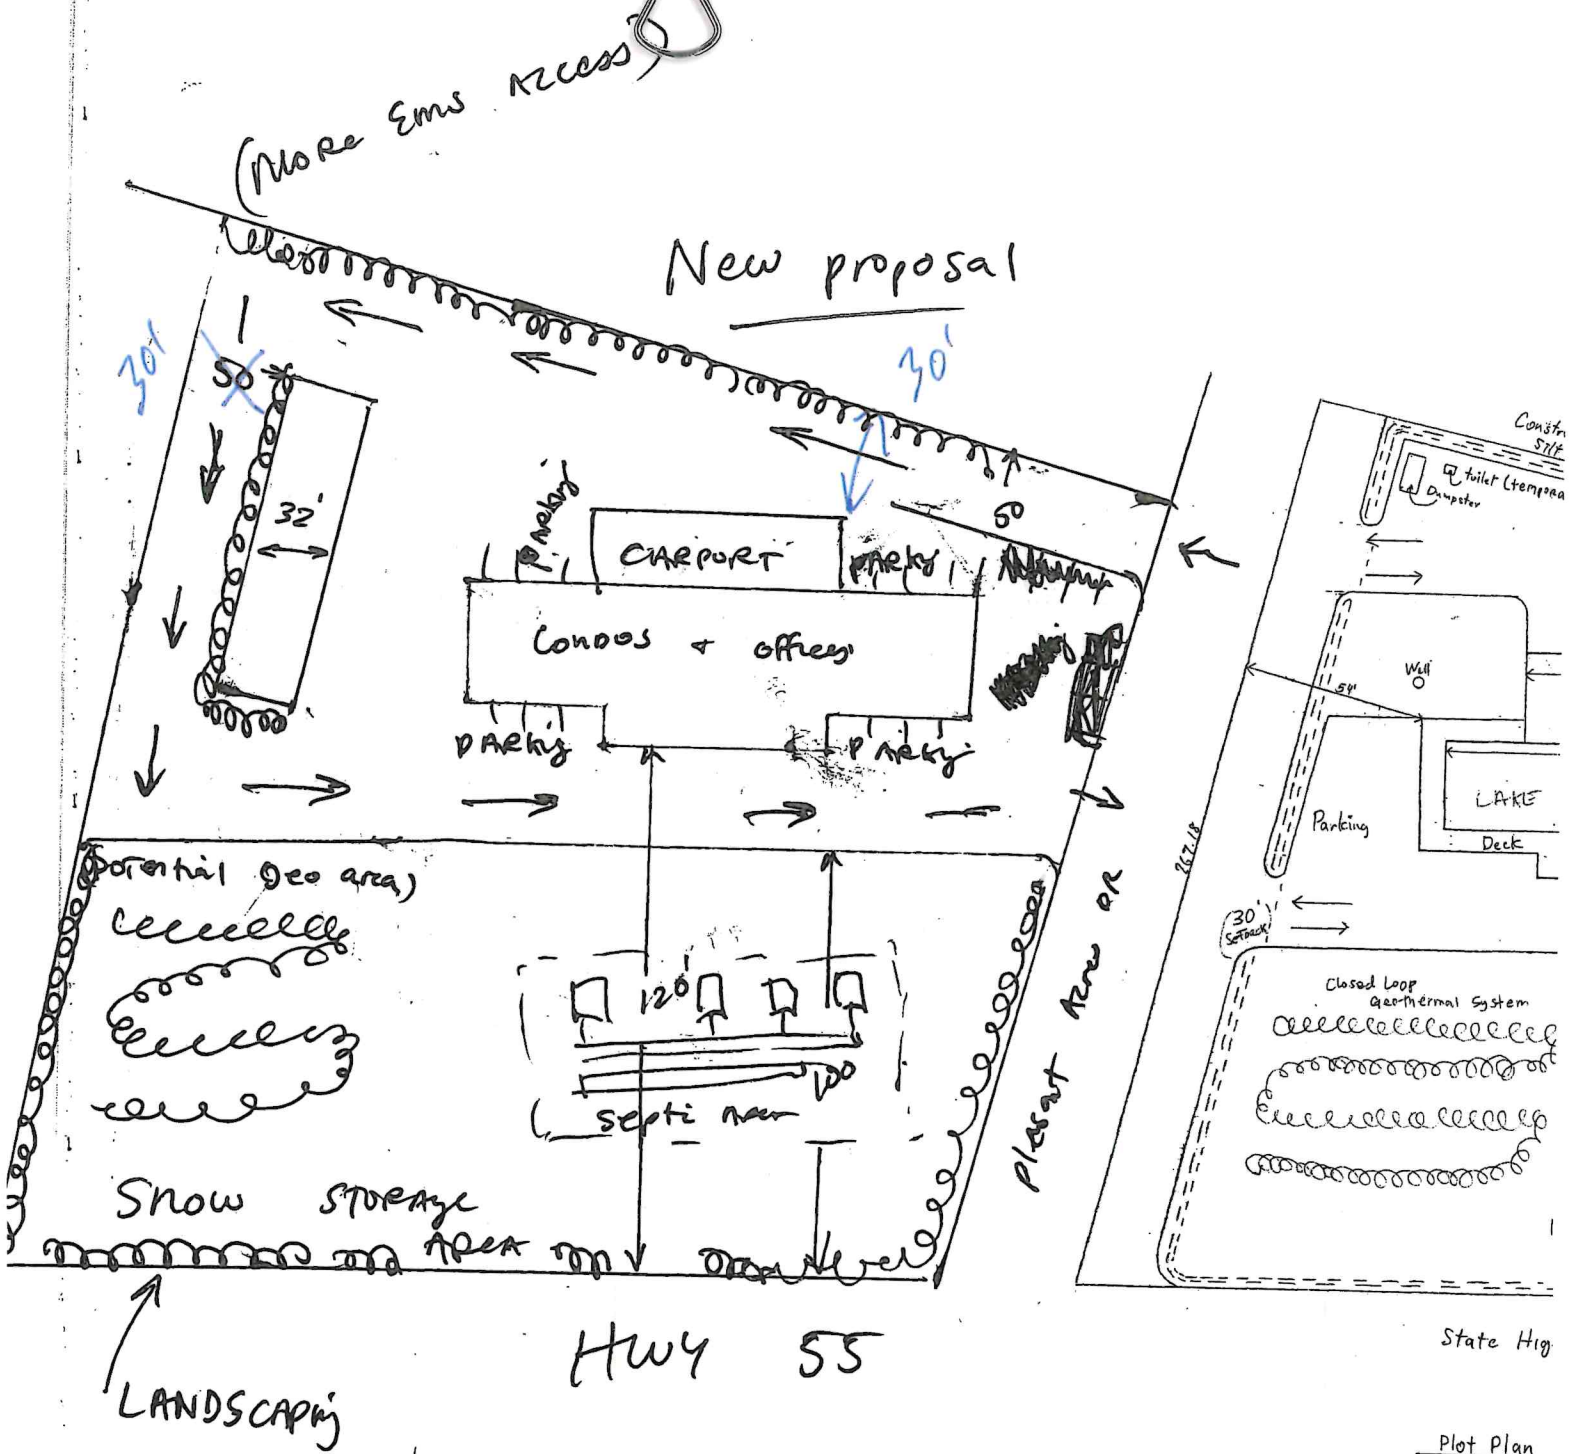 (MORE EMS ACCESS)
New proposal
30'
30'
50
32'
50
PARKing
CARPORT
PARKing
Condos + offices
PARKing
PARKing
(Potential geo area)
120'
100
Snow STORAGE
AREA
HWY 55
LANDSCAPing
Pleasant Acres DR
Constr
Silt
toilet (tempora
Dumpster
Well
54'
LAKE
Parking
Deck
267.18
30'
Setback
Closed Loop
Geothermal System
State Hig
Plot Plan